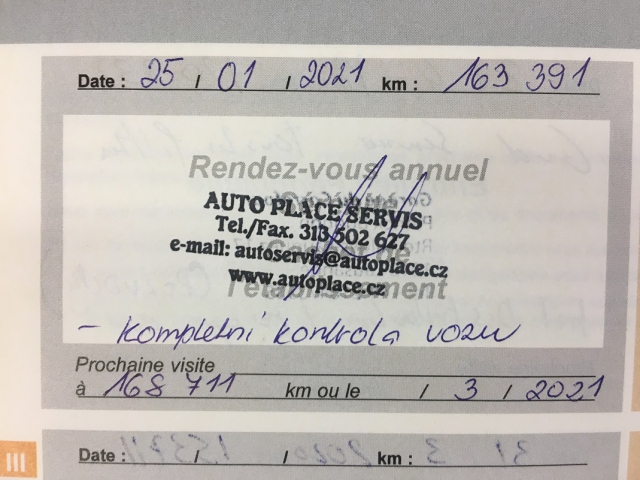 Date : 25 / 01 / 2021 km : 163 391
Rendez-vous annuel
AUTO PLACE SERVIS
Tel./Fax. 313 502 627
e-mail: autoservis@autoplace.cz
www.autoplace.cz
Cachet de
l'établissement
- kompletní kontrola vozu
Prochaine visite
à 168 711 km ou le / 3 / 2021
III
Date : / / km :